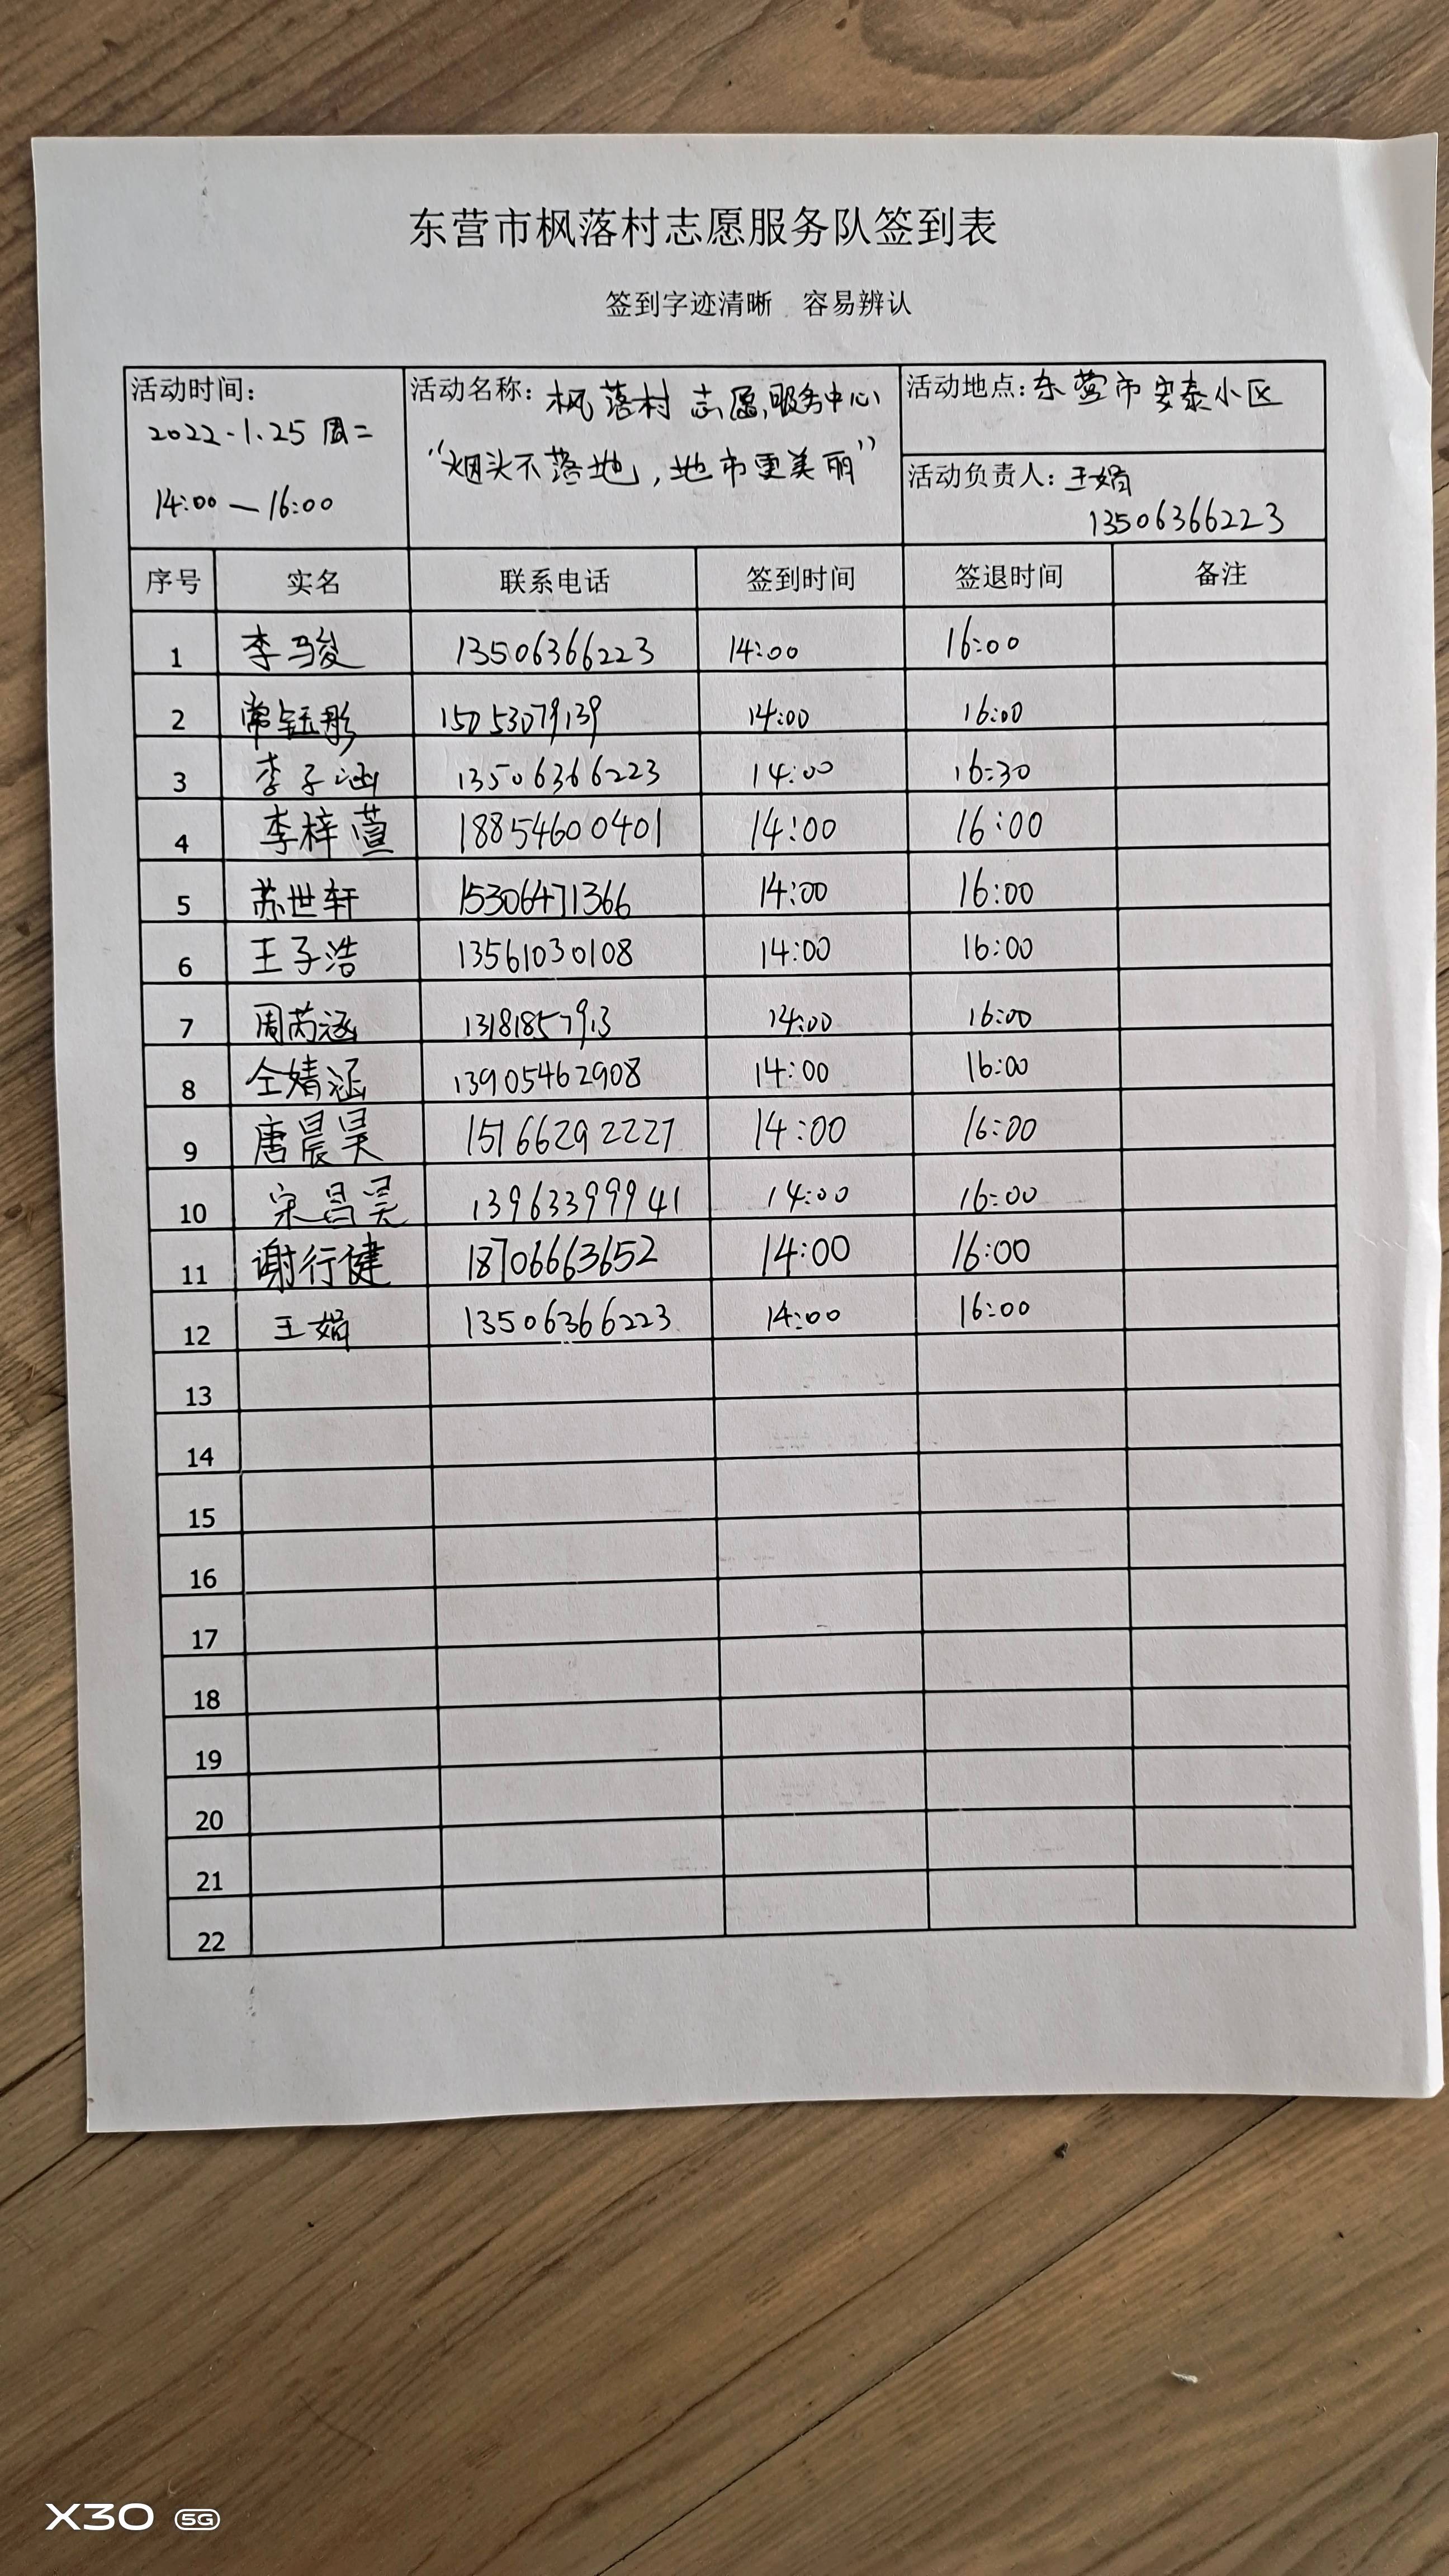 东营市枫落村志愿服务队签到表
签到字迹清晰 容易辨认
活动时间:
2022.1.25 周二
14:00—16:00
活动名称: 枫落村志愿服务中心
“烟头不落地,地市更美丽”
活动地点: 东营市安泰小区
活动负责人: 王娟
13506366223
序号 实名 联系电话 签到时间 签退时间 备注
1 李骏 13506366223 14:00 16:00
2 常钰彤 15053079139 14:00 16:00
3 李子涵 13506366223 14:00 16:30
4 李梓萱 18854600401 14:00 16:00
5 苏世轩 15306471366 14:00 16:00
6 王子浩 13561030108 14:00 16:00
7 周芮涵 13181857913 14:00 16:00
8 仝婧涵 13905462908 14:00 16:00
9 唐晨昊 15166292227 14:00 16:00
10 宋昌昊 13963399941 14:00 16:00
11 谢行健 18706663652 14:00 16:00
12 王娟 13506366223 14:00 16:00
13
14
15
16
17
18
19
20
21
22
X30 5G